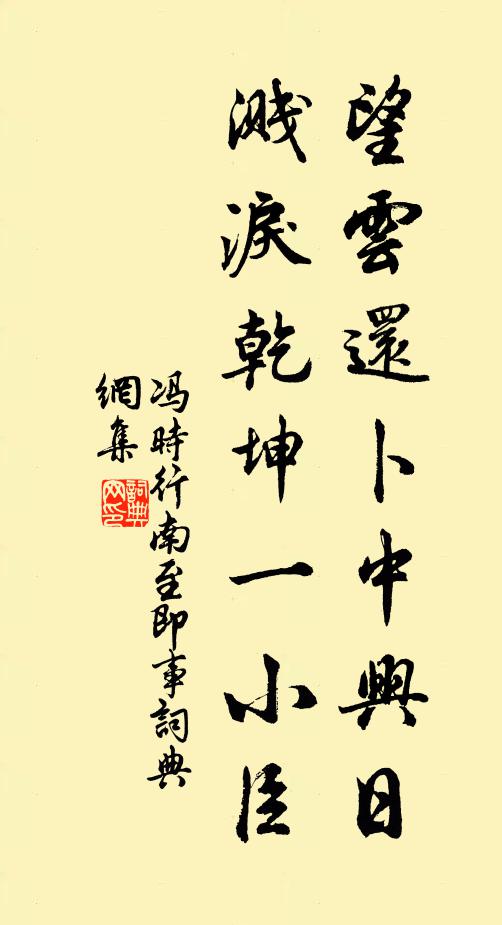 望雲還卜中興日
濺淚乾坤一小臣
冯時行南至即事詞典
網集
詞典網印